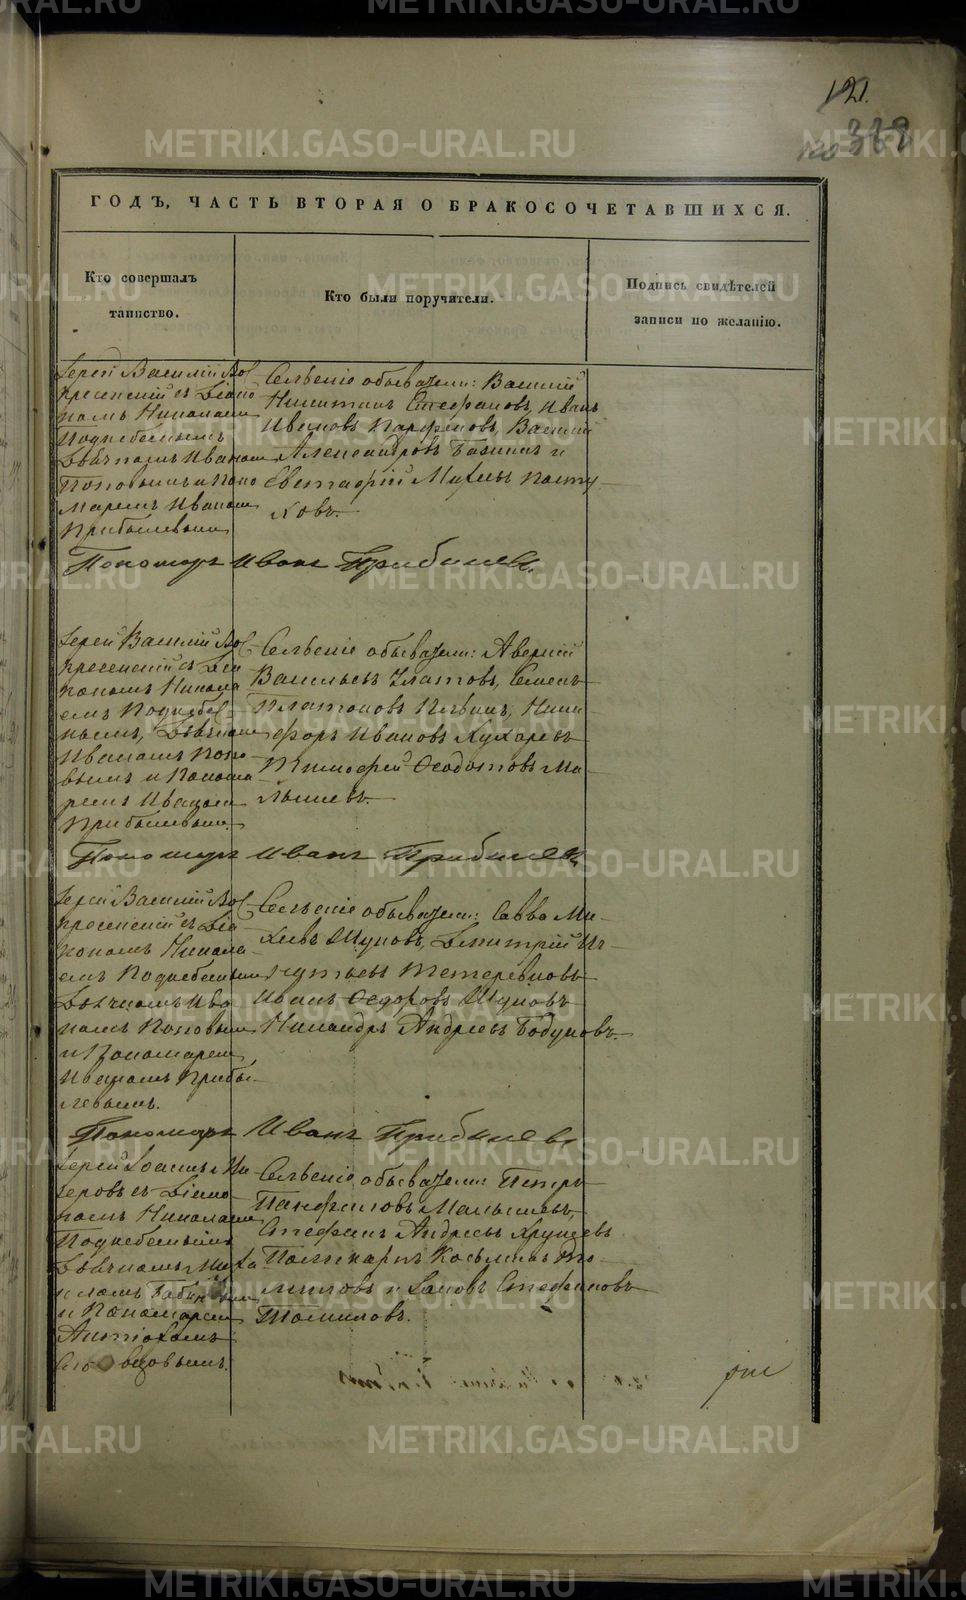 121.
ГОДЪ, ЧАСТЬ ВТОРАЯ О БРАКОСОЧЕТАВШИХСЯ.
Кто совершалъ
таинство.
Кто были поручители.
Подпись свидѣтелей
записи по желанію.
Іерей Василій Вос
кресенскій съ Діако
номъ Николаемъ
Поднебеснымъ
Дьячкомъ Иваномъ
Поповымъ и Поно
маремъ Иваномъ
Прибылевымъ
Сельскіе обыватели: Василій
Никитинъ Стефановъ, Иванъ
Ивановъ Парфеновъ, Василій
Александровъ Бахинъ и
Евстафій Михеевъ Пасту
ховъ.
Пономарь Иванъ Прибылевъ.
Іерей Василій Вос
кресенскій съ Діа
кономъ Никола
емъ Поднебес
нымъ, Дьячкомъ
Иваномъ Попо
вымъ и Понома
ремъ Иваномъ
Прибылевымъ.
Сельскіе обыватели: Аверкій
Васильевъ Платовъ, Семенъ
Платоновъ Ники
форъ Ивановъ Кухаревъ
Тимофей Ѳеодотовъ Ма
лышевъ.
Пономарь Иванъ Прибылевъ
Іерей Василій Вос
кресенскій съ Діа
кономъ Никола
емъ Поднебеснымъ
Дьячкомъ Ива
номъ Поповымъ
и Пономаремъ
Иваномъ Прибы
левымъ.
Сельскіе обыватели: Савва Ми
хеевъ Шуповъ, Димитрій Иг
натьевъ Тетеревковъ
Иванъ Ѳедоровъ Шуповъ
Никандръ Андреевъ Бодуновъ.
Пономарь Иванъ Прибылевъ
Іерей Іоаннъ Ма
каровъ съ Діако
номъ Николаемъ
Поднебеснымъ
Дьячкомъ Миха
иломъ
и Пономаремъ
Антіохомъ
Словцовымъ.
Сельскіе обыватели: Петръ
Панфиловъ Малышевъ,
Стефанъ Андреевъ Хрущевъ
Поликарпъ Косьминъ То
миловъ и Іаковъ Стефановъ
Томиловъ.
METRIKI.GASO-URAL.RU